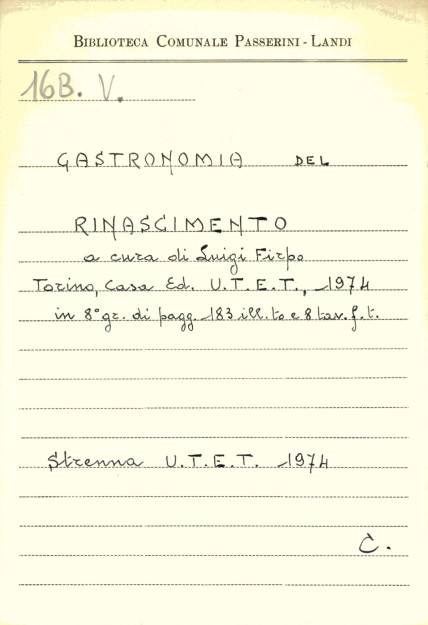 BIBLIOTECA COMUNALE PASSERINI - LANDI
16B. V.
GASTRONOMIA DEL
RINASCIMENTO
a cura di Luigi Firpo
Torino, Casa Ed. U.T.E.T., 1974
in 8° gr. di pagg. 183 ill.to e 8 tav. f. t.
Strenna U.T.E.T. 1974
C.